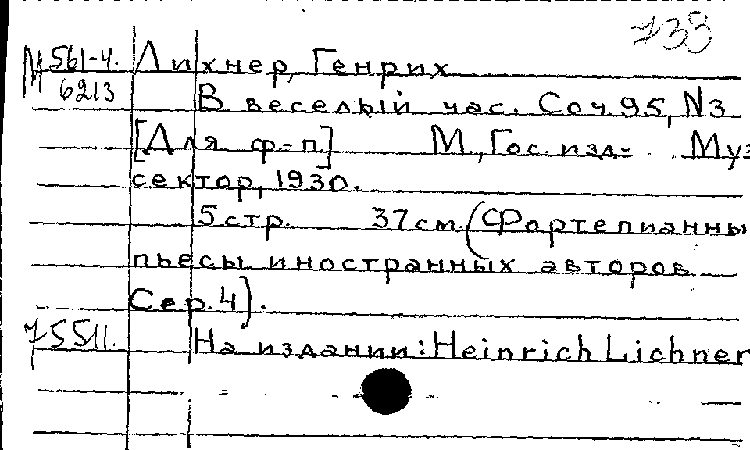 738
М 561-4. Лихнер, Генрих
6213 В веселый час. Соч. 95, N3
[Для ф-п.] М., Гос. изд- Муз
сектор, 1930.
5 стр. 37 см. (Фортепианны
пьесы иностранных авторов
Сер. 4).
75511. На издании: Heinrich Lichner